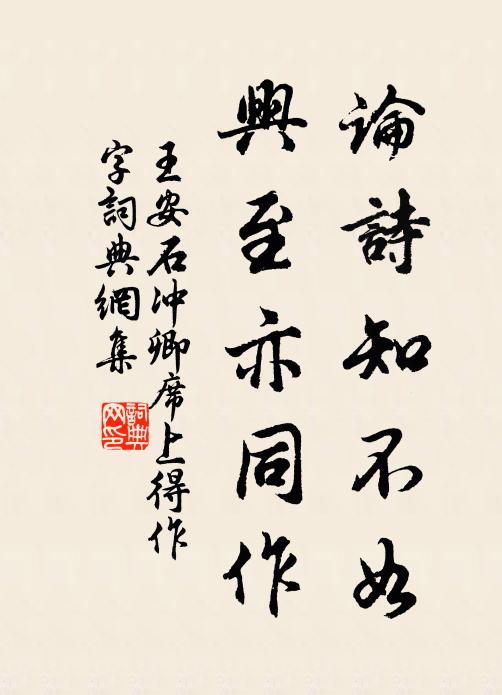 論詩知不如
興至亦同作
王安石沖卿席上得作
字詞典網集
詞典
网印